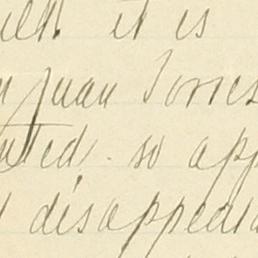 it is
Juan Torres
so app
disappeara